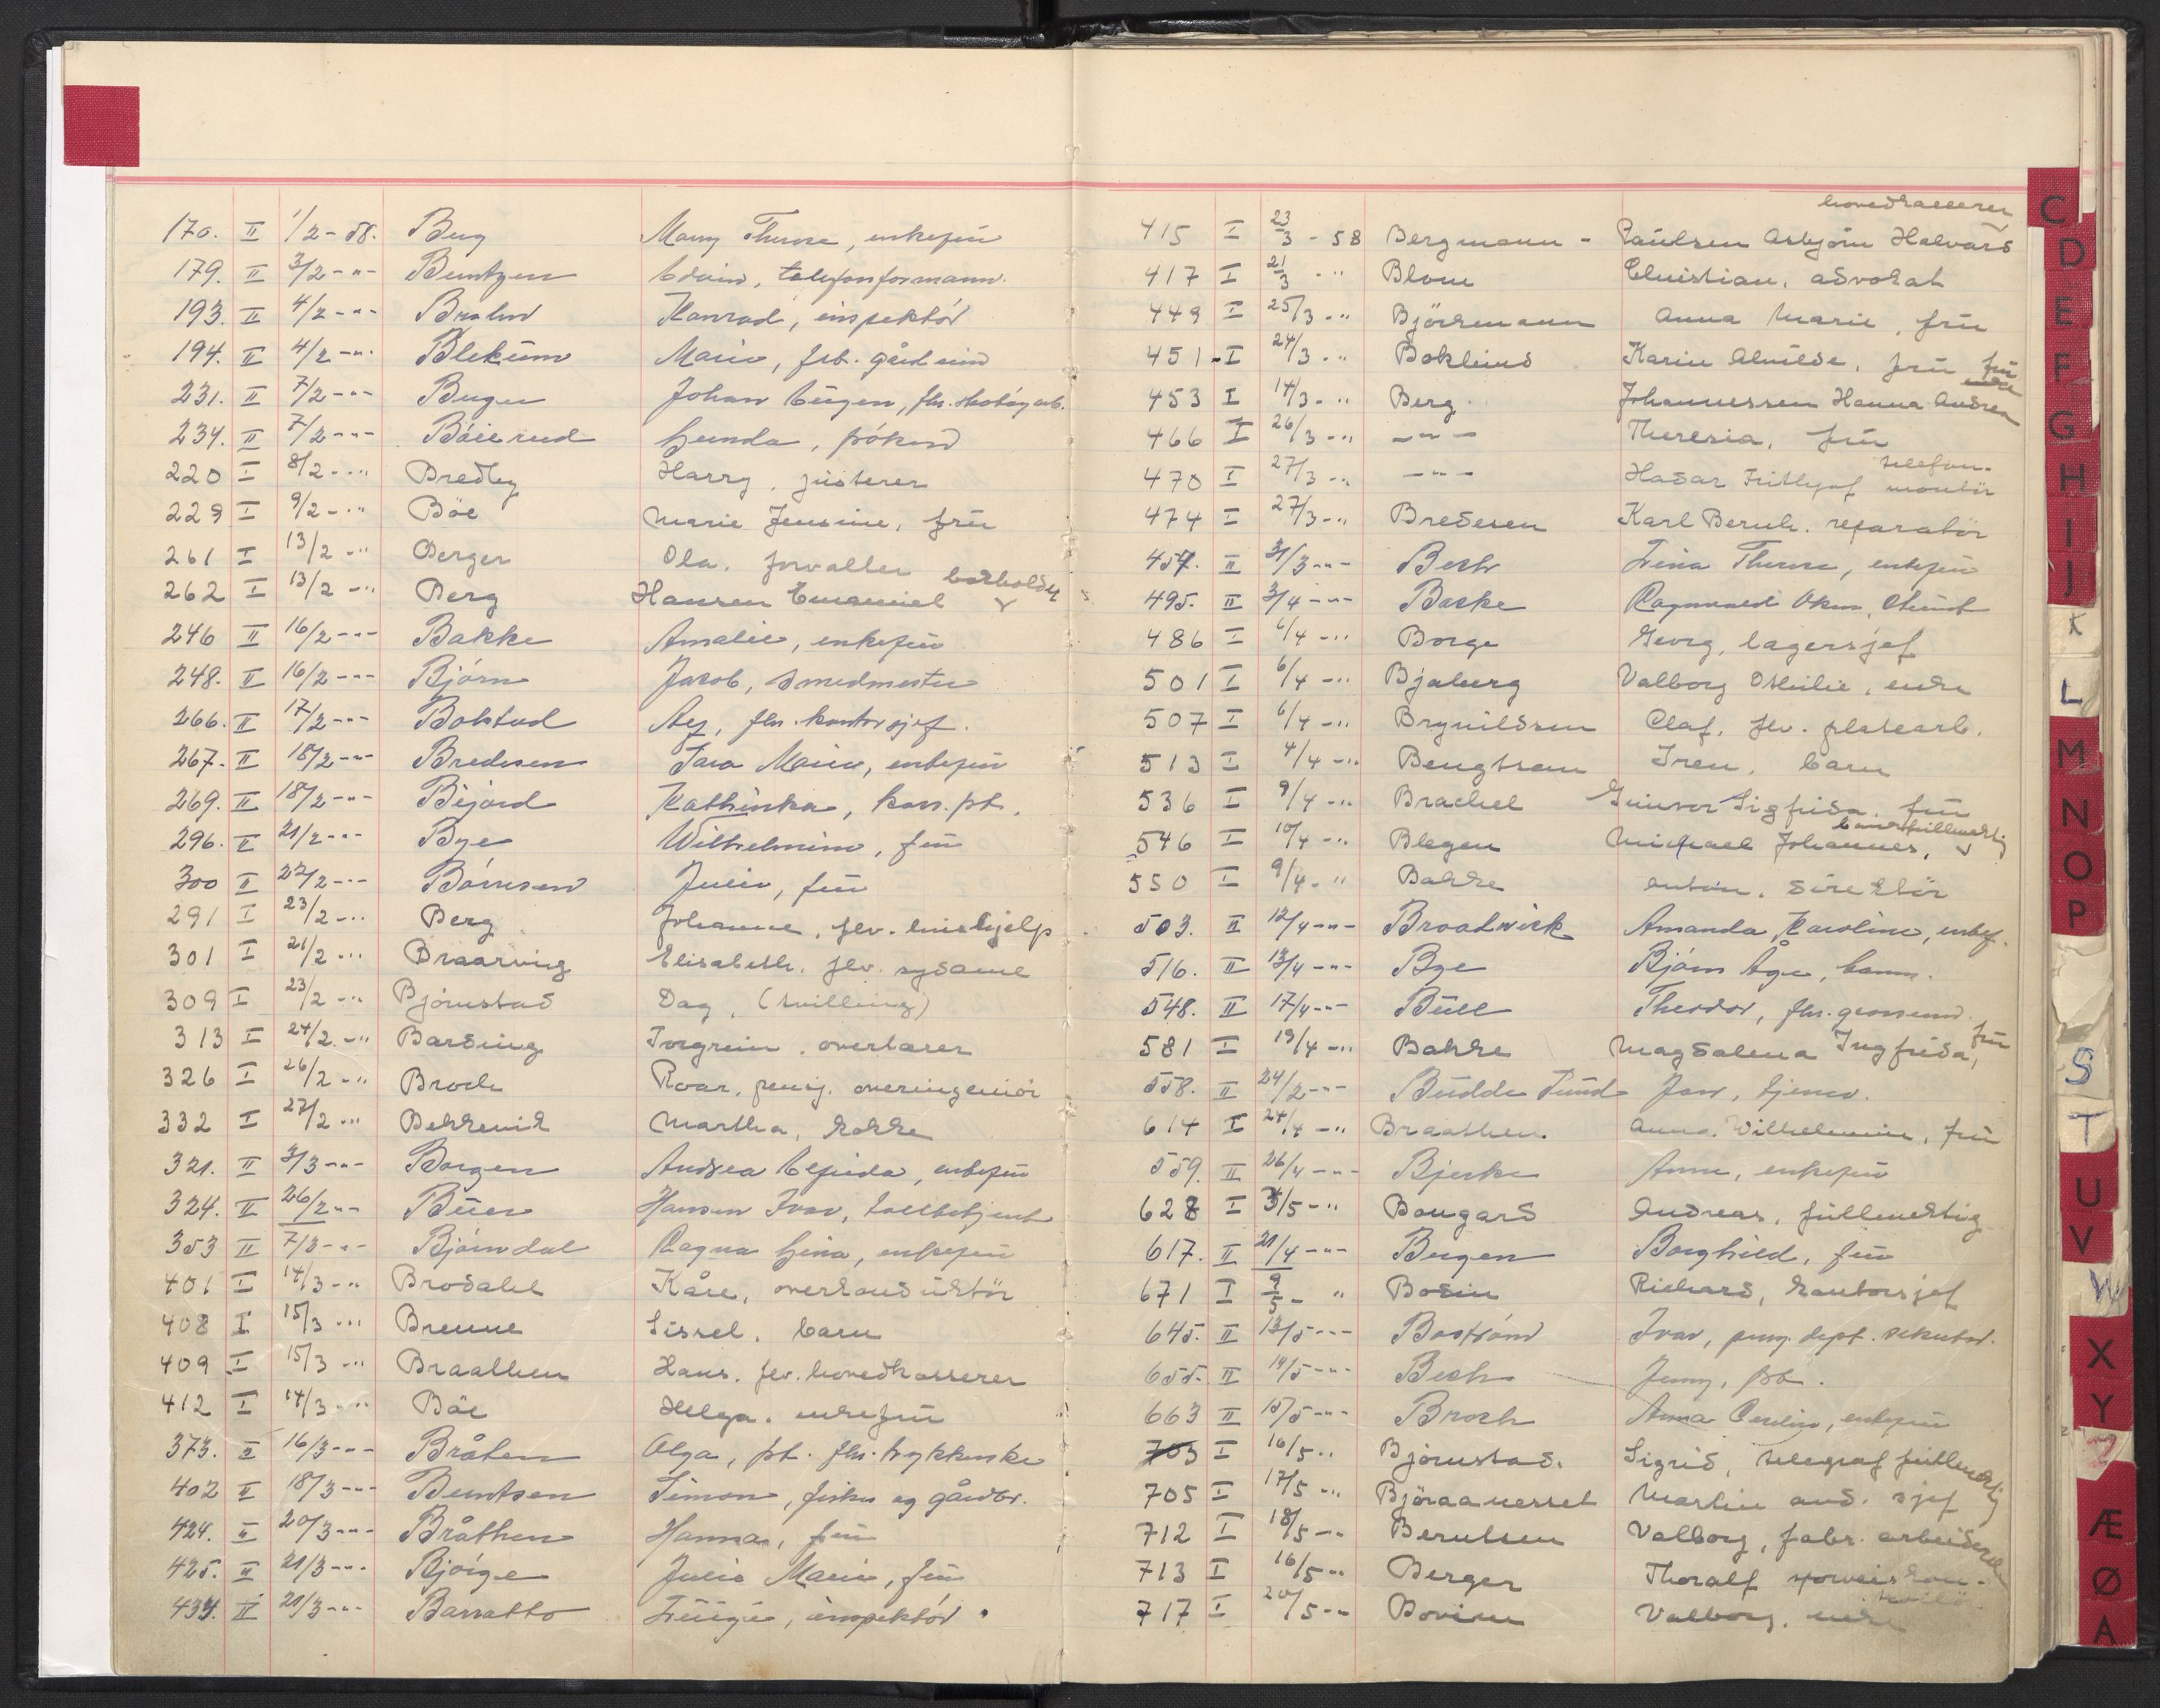 170. II 1/2-58. Berg Mary Therese, enkefrü
179. II 3/2-"- Berntzen telefonformann.
193. II 4/2-"- Brahn Konrad, inspektör
194. II 4/2-"- Blekum Marie, frb. gårdeine
231. II 7/2-"- Berger Johan Eugen, fhv. skotöyarb.
234. II 7/2-"- Böierud Gunda, fröken
220 I 8/2-" Bredby Harry, justerer
229 I 9/2-" Böe Marie Jensine, frü
261 I 13/2-" Berger Ola. forvalter
262 I 13/2-" Berg Hansen Emanuel bokholder
246 II 16/2-"- Bakke Amalie, enkefrü
248. II 16/2-"- Björn Jakob, smedmester
266. II 17/2-"- Bolstad fhv. kontorsjef.
267. II 18/2-"- Bredesen Tara Marie, enkefrü
269. II 18/2-"- Bejord Kathinka, kass. pt.
296. II 21/2-"- Bye Wilhelmine, frü
300 II 22/2-"- Börnsen Julie, frü
291 I 23/2-" Berg Johanne, fhv. hushjelp
301 I 21/2-" Braarvig Elisabeth. fhv. sydame
309 I 23/2-" Björnstad Dag, (tvilling)
313 I 24/2-" Barding Torgrim. overlærer
326 I 26/2-" Broch Roar, pensj. overingeniör
332 I 27/2-" Bekkevik Martha, kokke
321. II 3/3-"- Borgen Andrea Elfrida, enkefrü
324. II 26/2-"- Büer Hansen Ivar, tollbetjent
353 II 7/3-"- Björndal Ragna Gina, enkefrü
401 I 14/3-" Brodahl Kåre, overkonduktör
408 I 15/3-" Brenne Sissel. barn
409 I 15/3-" Braathen Hans. fhv. hovedkasserer
412 I 14/3-" Böe Helga. enkefrü
373. II 16/3-"- Bråten Olga, pt. fhv. trykkerske
402 II 18/3-"- Berntsen Simon, fisker og gårdbr.
424. II 20/3-"- Bråthen Hanna, frü
425. II 21/3-"- Björge Julie Marie, frü
434. II 21/3-"- Barratto Luigi, inspektör
hovedkasserer
415 I 23/3-58 Bergmann - Paulsen Asbjörn Halvard
417 I 21/3-" Blom Christian. advokat
449 I 25/3-" Björkmann Anna Marie, frü
451 I 24/3-" Boklund Karin Alvilde, frü
453 I 14/3-" Berg Johannessen Hanna Andrea
466 I 26/3-" -"- Theresia, frü
470 I 27/3-" -"- Hadar Frithjof telefonmontör
474 I 27/3-" Bredesen Karl Bernh. reparatör
457. II 31/3-"- Bech Lina Therese, enkefrü
495. II 3/4-"- Bakke Ragnvald
486 I 6/4-" Borge Georg, lagersjef
501 I 6/4-" Bjaberg Valborg Othilie, enke
507 I 6/4-" Brynildsen Olaf, fhv. platearb.
513 I 4/4-" Bengtsen Iren, barn
536 I 9/4-" Brachel Gunvor Sigfrida. frü
546 I 10/4-" Blegen Michael Johannes,
550 I 9/4-" Bakke Anton. direktör
503. II 12/4-"- Broadwick Amanda Karoline, enkef.
516. II 13/4-"- Bye Björn Åge, barn.
548. II 17/4-"- Bull Theodor, fhv. grosserer
581 I 19/4-" Bakke Magdalena Ingfrida, frü
558. II 24/2-"- Budde Lund Jan,
614 I 24/4-" Braathen. Anna Wilhelmine, frü
559. II 26/4-"- Bjerke Anna, enkefrü
628 I 3/5-" Bongard Andreas, fullmektig
617. II 21/4-"- Bergen Borghild, frü
671 I 9/5-" Bodin Richard, kontorsjef
645. II 13/5-"- Boström Ivar, pens. dept. sekretær.
655. II 14/5-"- Bech Jenny, pt.
663 II 15/5-"- Broch Anna Cecilie, enkefrü
703 I 16/5-" Björnstad. Sigrid, telegraf fullmektig
705 I 17/5-" Björaanesset Martin and. sjef
712 I 18/5-" Berntsen Valborg, fabr. arbeiderske
713 I 16/5-" Berger Thoralf
717 I 20/5-" Bovim Valborg, enke
C
D
E
F
G
H
I
J
K
L
M
N
O
P
S
T
U
V
W
X
Y
Z
Æ
Ø
A